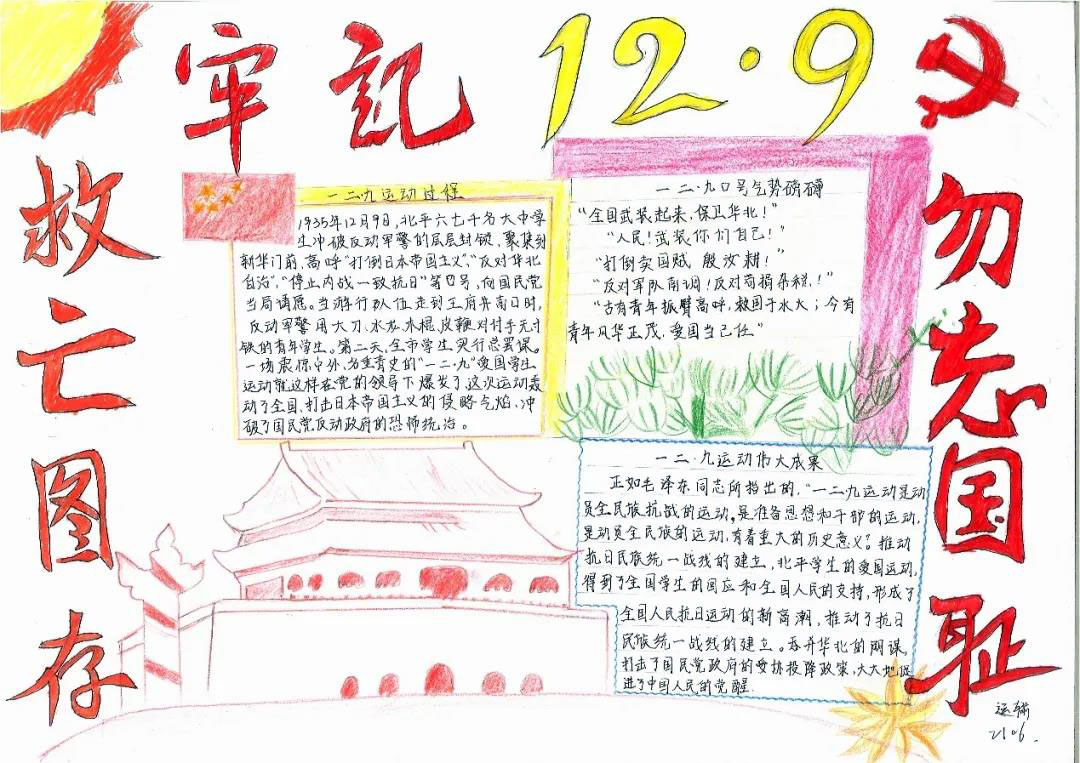 牢記 12·9
救亡图存
勿忘国耻
一二·九运动过程
1935年12月9日,北平六七千名大中学
生冲破反动军警的层层封锁,聚集到
新华门前,高呼“打倒日本帝国主义”,“反对华北
自治”,“停止内战一致抗日”等口号,向国民党
当局请愿。当游行队伍走到王府井南口时,
反动军警用大刀、水龙、木棍、皮鞭,对付手无寸
铁的青年学生。第二天,全市学生实行总罢课。
一场震惊中外、名垂青史的“一二·九”爱国学生
运动就这样在党的领导下爆发了,这次运动轰
动了全国,打击日本帝国主义的侵略气焰、冲
破了国民党反动政府的恐怖统治。
一二·九口号气势磅礴
“全国武装起来,保卫华北!”
“人民!武装你们自己!”
“打倒卖国贼 殷汝耕!”
“反对军队南调!反对苛捐杂税!”
“古有青年振臂高呼,救国于水火;今有
青年风华正茂,爱国当己任”
一二·九运动伟大成果
正如毛泽东同志所指出的,“一二九运动是动
员全民族抗战的运动,是准备思想和干部的运动,
是动员全民族的运动,有着重大的历史意义”。推动
抗日民族统一战线的建立,北平学生的爱国运动,
得到了全国学生的回应和全国人民的支持,形成了
全国人民抗日运动的新高潮,推动了抗日
民族统一战线的建立。吞并华北的阴谋,
打击了国民党政府的妥协投降政策,大大地促
进了中国人民的觉醒.
2106.